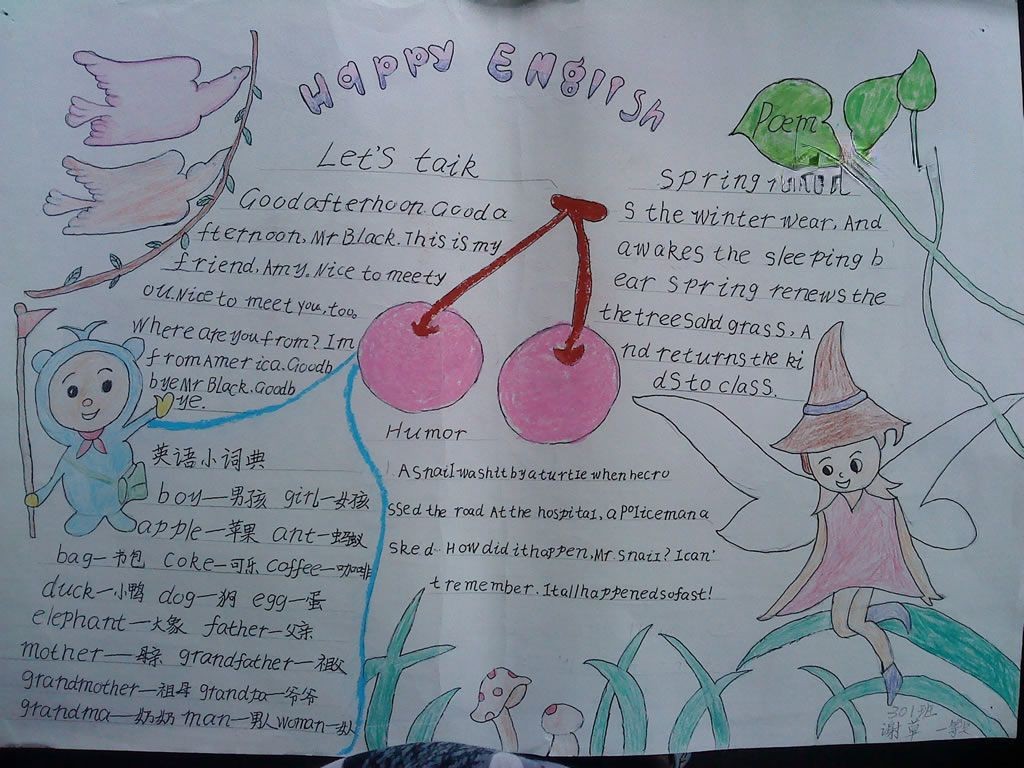 Happy English
Let's taik
Good afterhoon. Good a
fternoon, Mr Black. This is my
friend, Amy. Nice to meet y
ou. Nice to meet you, too.
Where are you from? Im
from America. Goodb
bye Mr Black. Goodb
ye.
Poem
Spring
S the winter wear, And
awakes the sleeping b
ear Spring renews the
the trees ahd grass, A
nd returns the ki
ds to class.
Humor
A snail was hit by a turtle when he cro
ssed the road At the hospital, a policeman a
sked. How did it happen, Mr snail? I can'
t remember. It all happened so fast!
英语小词典
boy—男孩 girl—女孩
apple—苹果 ant—蚂蚁
bag—书包 Coke—可乐 Coffee—咖啡
duck—小鸭 dog—狗 egg—蛋
elephant—大象 father—父亲
mother— grandfather—祖父
grandmother—祖母 grandpa—爷爷
grandma—奶奶 man—男人 woman—女人
301班
谢 草 一